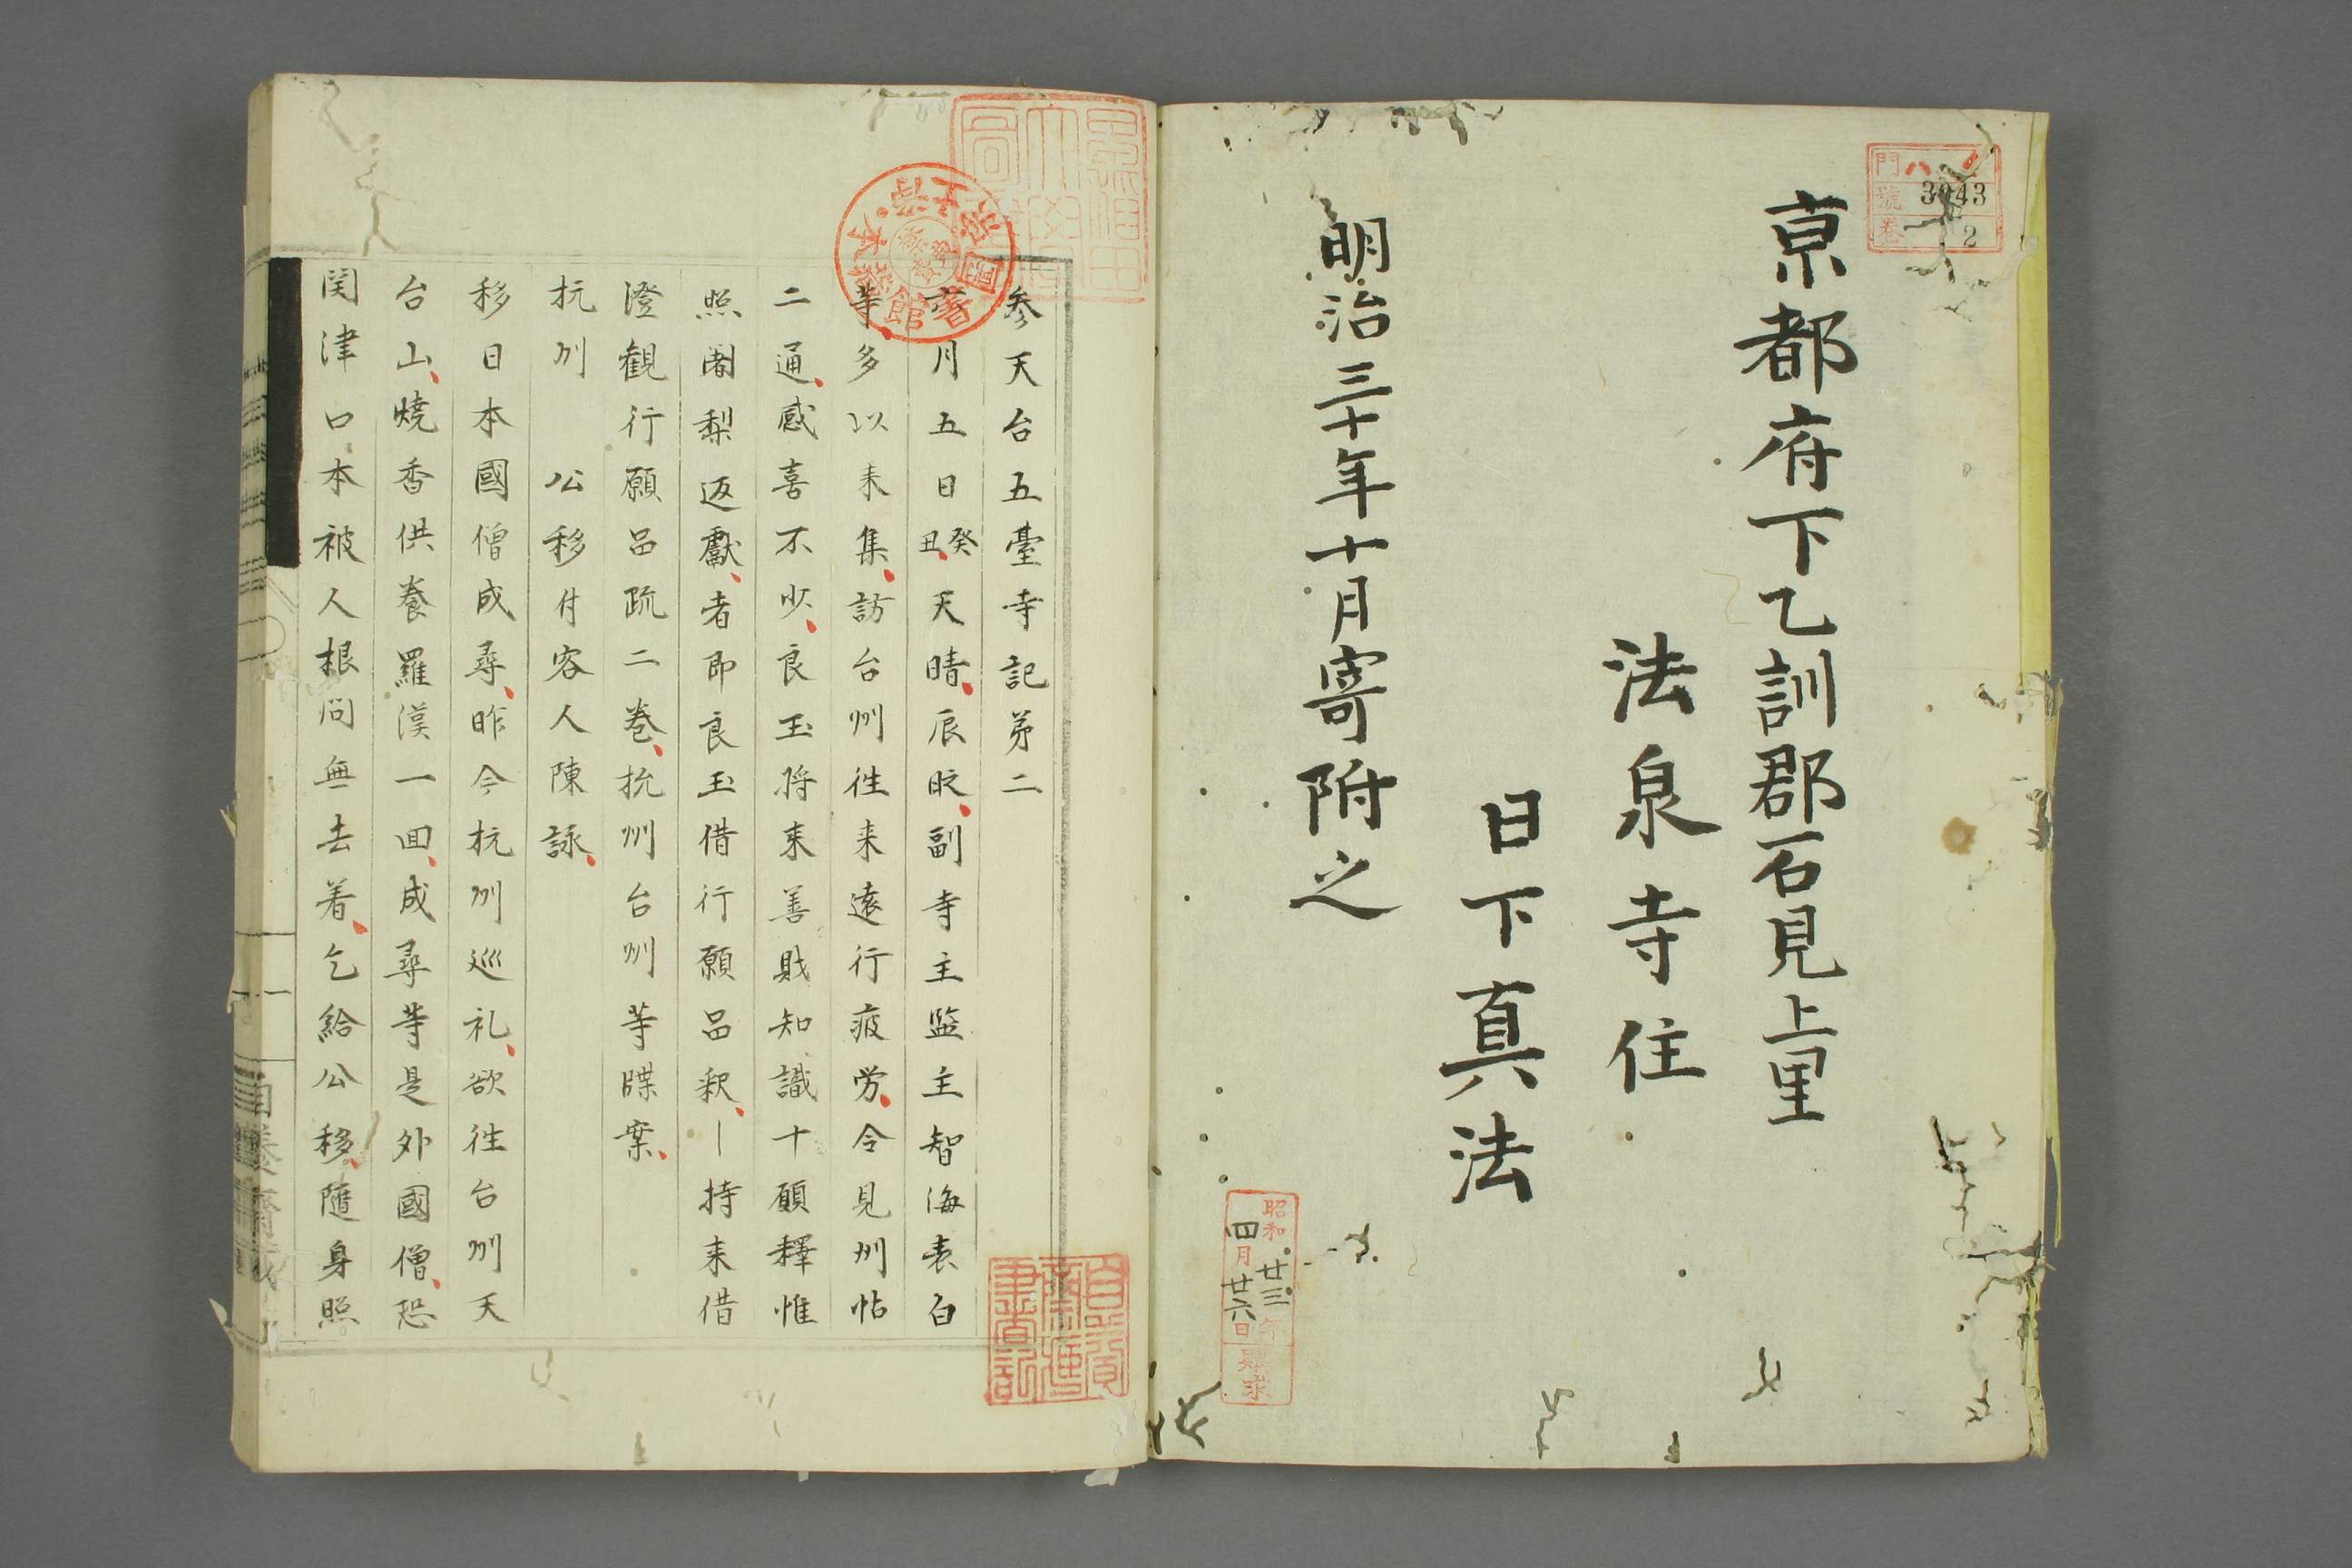 門 八
號 3043
巻 2
京都府下乙訓郡石見上里
法泉寺住
日下真法
明治三十年十月寄附之
昭和廿三年
四月廿六日
購求
参天台五臺寺記第二
六月五日癸丑天晴辰時副寺主監主智海表白
等多以来集訪台州往来遠行疲労令見州帖
二通感喜不少良玉将来善財知識十願釋惟
照闍梨返獻者即良玉借行願品釈一持来借
澄観行願品疏二巻抗州台州等牒案
抗州 公移付客人陳詠
移日本國僧成尋昨今抗州巡礼欲往台州天
台山焼香供養羅漢一回成尋等是外國僧恐
関津口本被人根問無去着乞給公移随身照